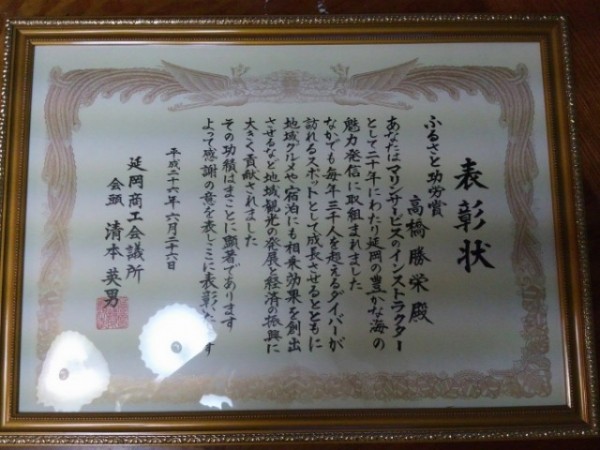 表彰状
ふるさと功労賞
高橋勝栄殿
あなたはマリンサービスのインストラクター
として二十年にわたり延岡の豊かな海の
魅力発信に取組まれました
なかでも毎年三千人を超えるダイバーが
訪れるスポットとして成長させるとともに
地域グルメや宿泊にも相乗効果を創出
させるなど地域観光の発展と経済の振興に
大きく貢献されました
その功績はまことに顕著であります
よって感謝の意を表しここに表彰いた す
平成二十六年六月二十六日
延岡商工会議所
会頭 清本英男